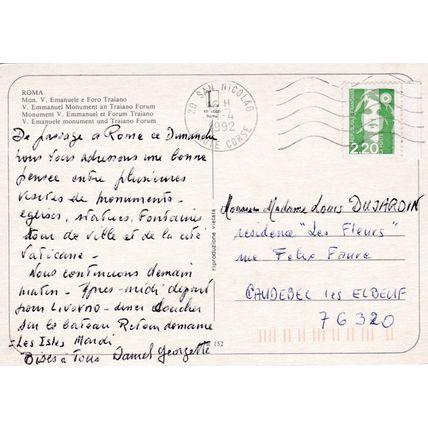 ROMA
Mon. V. Emanuele e Foro Traiano
V. Emmanuel Monument an Traiano Forum
Monument V. Emmanuel et Forum Traiano
V. Emanuele monument und Traiano Forum
20 SAN NICOLAO
HAUTE CORSE
1992
2,20
De passage a Rome ce Dimanche
nous vous adressons une bonne
pensée entre plusieures
visites de monuments -
eglises, statues, Fontaines
tour de ville et de la cité
Vaticane -
Nous continuons demain
matin - Apres-midi depart
pour Livorno - diner coucher
sur le bateau Retour domaine
Les Isles Mardi
Bises à Tous Daniel Georgette
riproduzione vietata
Monsieur Madame Louis DUJARDIN
residence "Les Fleurs"
rue Felix Faure
CAUDEBEC les ELBEUF
76320
152